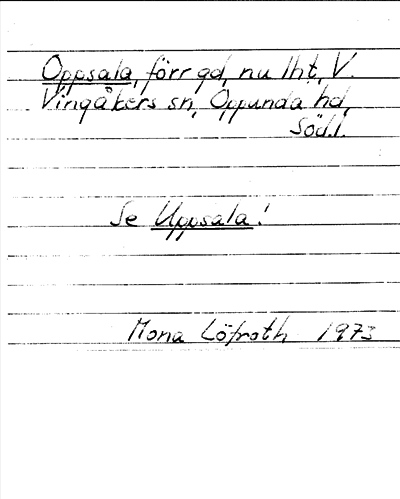 Oppsala, förr gd, nu lht, V.
Vingåkers sn, Oppunda hd,
Södl.
Se Uppsala!
Mona Löfroth 1973